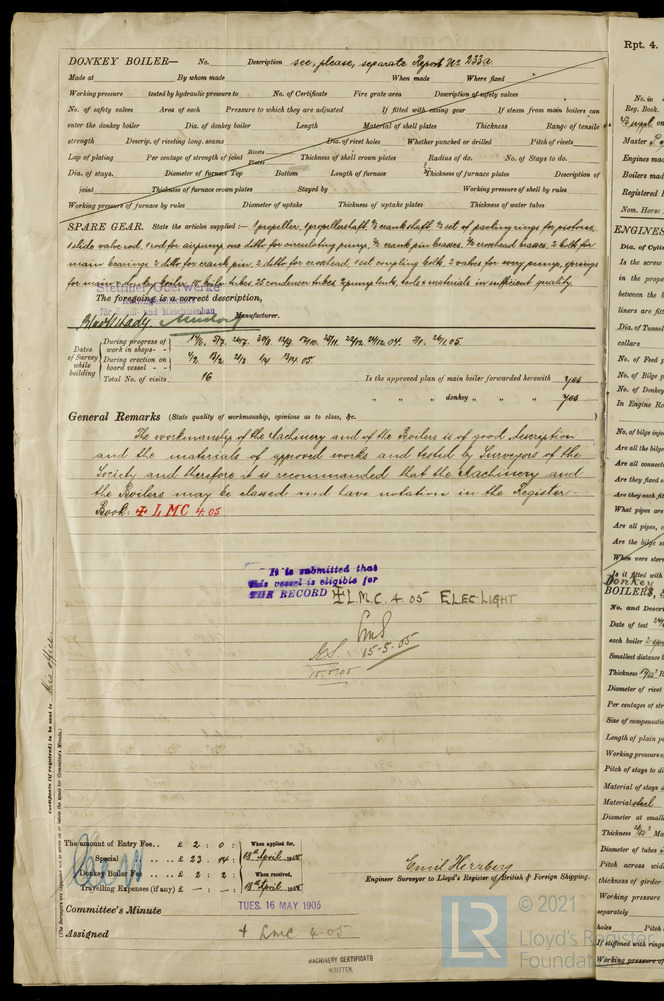 DONKEY BOILER— No. Description see, please, separate Report No 233a.
Made at By whom made When made Where fixed
Working pressure tested by hydraulic pressure to No. of Certificate Fire grate area Description of safety valves
No. of safety valves Area of each Pressure to which they are adjusted If fitted with easing gear If steam from main boilers can
enter the donkey boiler Dia. of donkey boiler Length Material of shell plates Thickness Range of tensile
strength Descrip. of riveting long. seams Dia. of rivet holes Whether punched or drilled Pitch of rivets
Lap of plating Per centage of strength of joint Rivets Plates Thickness of shell crown plates Radius of do. No. of Stays to do.
Dia. of stays. Diameter of furnace Top Bottom Length of furnace Thickness of furnace plates Description of
joint Thickness of furnace crown plates Stayed by Working pressure of shell by rules
Working pressure of furnace by rules Diameter of uptake Thickness of uptake plates Thickness of water tubes
SPARE GEAR. State the articles supplied:— 1 propeller, 1 propellershaft, 1/2 crankshaft, 1/2 set of packing rings for pistons,
1 slide valve rod, 1 rod for airpump one ditto for circulating pump, 1/2 crank pin brasses, 1/2 crosshead brasses, 2 bolts for
main bearings, 2 ditto for crank pin, 2 ditto for crosshead, 1 set coupling bolts, 2 valves for every pump, springs
for main & donkey boiler, boiler tubes, 25 condenser tubes, tools & materials in sufficient quality.
Stettiner Oderwerke
The foregoing is a correct description,
für Schiff- und Maschinenbau
Manufacturer.
Dates of Survey while building
During progress of work in shops - - 14/6. 5/7. 26/7. 20/8. 12/9. 17/10. 24/11. 22/12. 24/12. 04. 3/1. 26/1. 05
During erection on board vessel - - 4/2. 13/2. 2/3. 1/4. 13/4. 05.
Total No. of visits 16
Is the approved plan of main boiler forwarded herewith yes
" " " donkey " " " yes
General Remarks (State quality of workmanship, opinions as to class, &c. )
The workmanship of the Machinery and of the Boilers is of good description
and the materials of approved works and tested by Surveyors of the
Society and therefore it is recommanded that the Machinery and
the Boilers may be classed and have notation in the Register-
Book: ✠ LMC 4.05
It is submitted that
this vessel is eligible for
THE RECORD ✠ L.M.C. 4.05 ELEC. LIGHT
15-5-05
15.5.05
Certificate (if required) to be sent to this office.
(The Surveyors are requested not to write on or below the space for Committee's Minute.)
The amount of Entry Fee.. £ 2 : 0 : When applied for,
Special .. .. £ 23 . 14 : 13th April 1905
Donkey Boiler Fee .. .. £ 2 : 2 : When received,
Travelling Expenses (if any) £ — : — : 18th April 1905
Emil Herzberg
Engineer Surveyor to Lloyd's Register of British & Foreign Shipping.
Committee's Minute
TUES. 16 MAY 1905
Assigned + LMC 4.05
MACHINERY CERTIFICATE
WRITTEN.
Rpt. 4.
No. in
Reg. Book.
Master
Engines mad
Boilers mad
Registered
Nom. Horse
ENGINES
Dia. of Cyli
Is the screw
in the prope
between the
liners are fit
Dia. of Tunnel
collars
No. of Feed p
No. of Bilge p
No. of Donkey
In Engine Ro
No. of bilge injec
Are all the bilge
Are all connect
Are they fixed
Are they each fit
What pipes are
Are all pipes,
Are the bilge
When were stern
Is it fitted with
Donkey
BOILERS, &
No. and Descri
Date of test
each boiler
Smallest distance
Thickness
Diameter of rivet
Per centages of str
Size of compensatio
Length of plain p
Working pressure
Pitch of stays to d
Material of stays
Material steel
Diameter at small
Thickness
Diameter of tubes
Pitch across wid
thickness of girder
Working pressure
separately
holes Pitch
If stiffened with rings
Working pressure of
LR
© 2021
Lloyd's Register
Foundation